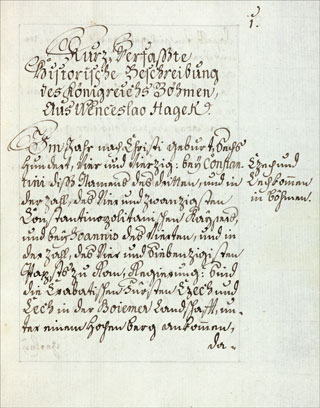 1.
Kurz Verfaßte
Historische Beschreibung
des Königreichs Böhmen,
Aus Wenceslao Hagek.
Im Jahr nach Christi Geburt, Sechs
Hundert, Vier und Vierzig: beÿ Constan-
tini diß Namens des dritten, und in
der Zahl, des Vier und Zwanzigsten
Constantinopolitanischen Kaÿsers,
und beÿ Joannis des Vierten, und in
der Zahl, des Vier und Siebenzigisten
Papsts zu Rom, Regierung: Sind
die Crabatischen Fürsten Czech und
Lech in der Boiemer Landschafft, un-
ter einem Hohen berg ankommen,
da-
Czech und
Lech kommen
in böhmen.